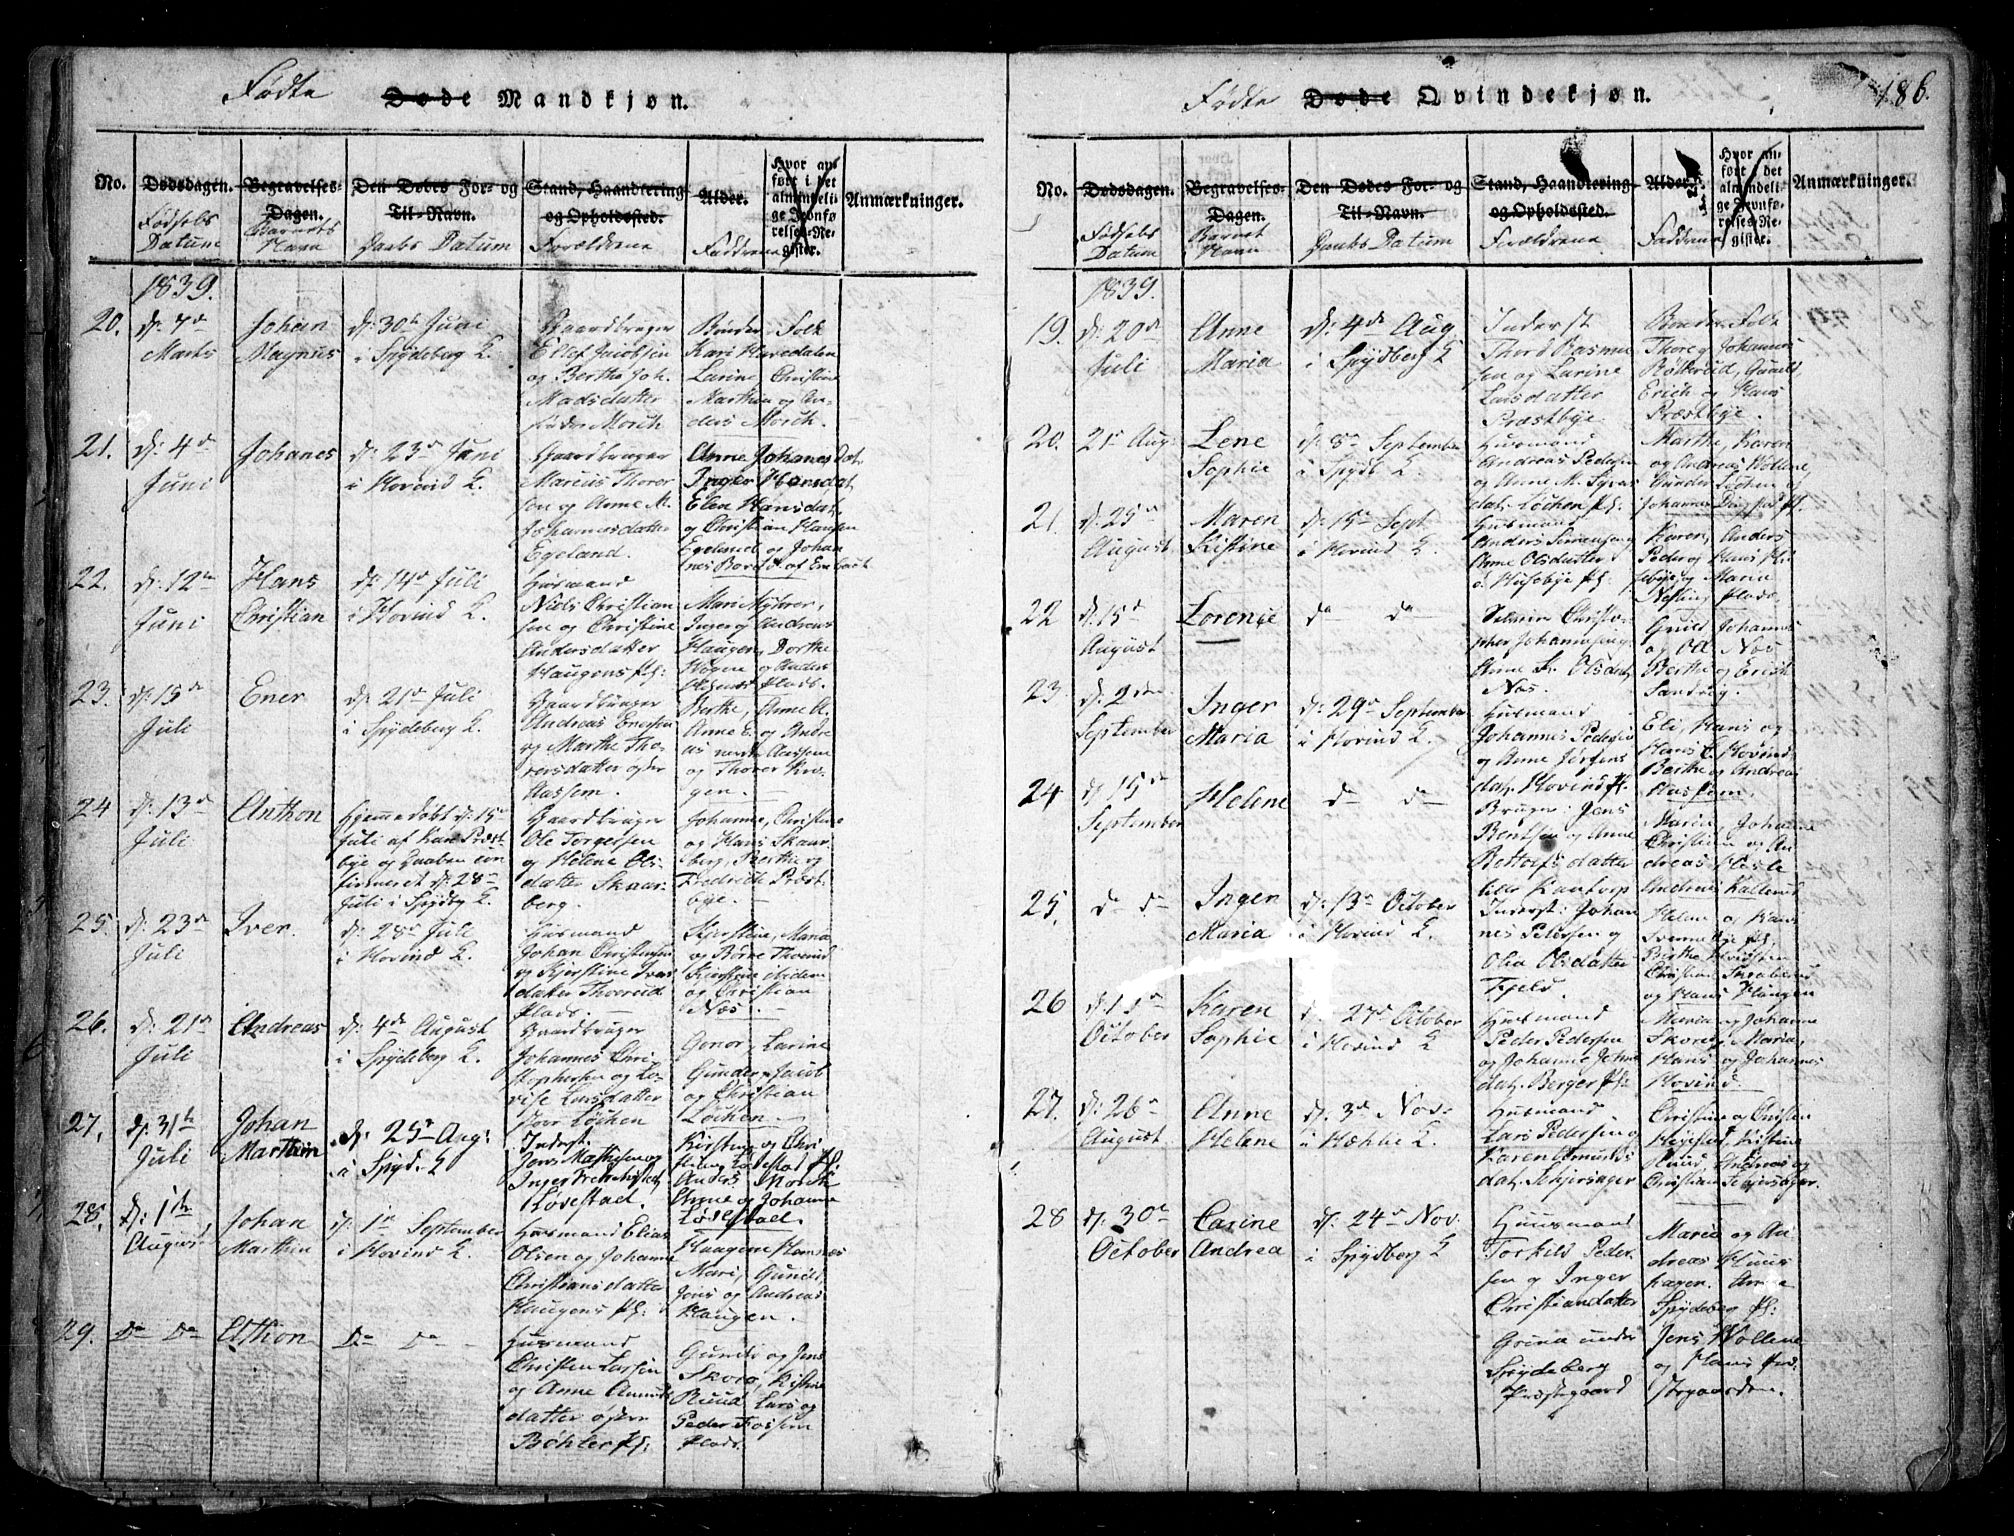 Fødte Døde Mandkjøn.
No.
Dødsdagen.
Fødsels
Datum
Begravelses-
Dagen.
Barnets
Navn
Den Dødes For- og
Til-Navn.
Daabs Datum
Stand, Haandtering
og Opholdssted.
Forældrene
Alder.
Faddrene
Hvor an-
ført i det
almindeli-
ge Jevnfø-
relses-Re-
gister.
Anmærkninger.
1839.
20.
d: 7de
Marts
Johan
Magnus
d: 30te Juni
i Spydeberg K.
Gaardbruger
Ellef Jacobsen
og Berthe Joh.
Madsdatter
Mørch
Bønder Folk
Kari Havedalen
Larine, Christine
Marthea og An-
ders Mørch.
21.
d: 4de
Juni
Johanes
d: 23de Juni
i Hovind K.
Gaardbruger
Marcus Thorer
sen og Anne M.
Johannesdatter
Egeland.
Anne Johanesdat.
Inger Hansdat.
Elen Hansdat.
og Christian Hansen
Egeland og Johan
22.
d: 12te
Juni
Hans
Christian
d: 14de Juli
i Hovind K.
Huusmand
Niels Christian
sen og Christine
Andersdatter
Haugens Pl:
Inger og Andreas
Haugen, Dorthe
og Anders
Plads.
23.
d: 15de
Juli
Ener
d: 21de Juli
i Spydeberg K.
Gaardbruger
Andreas Enersen
og Marthe Tho-
rersdatter
Aassem.
Berthe, Anne A.
Anne E. og Andre
as Aassem
og Thorer Kro-
gen.
24
d: 13de
Juli
Anthon
Hjemmedøbt d: 15de
Juli af Hans Præst
bye og Daaben con
firmeret d: 28de
Juli i Spydbg K.
Gaardbruger
Ole Torgersen
og Helene Ols-
datter Skaar-
berg.
Johanne, Christine
og Hans Skaar-
berg, Berthe og
Fredrich Præst
bye.
25.
d: 23de
Juli
Iver.
d: 28de Juli
i Hovind K.
Huusmand
Johan Christensen
og Kjerstine Ivers
datter Thverud
Plads.
Kjerstine, Maria
og Børre Thverud
Kjerstine ibidem
og Christian
Næs.
26.
d: 21de
Juli
Andreas
d: 4de August
i Spydeberg K.
Gaardbruger
Johannes Chri-
stophersen og Lo-
vise Larsdatter
Stoer Løchen
Gonor, Larine
Gunder, Jacob
og Christian
Løchen.
27.
d: 31te
Juli
Johan
Marthin
d: 25de Aug:
i Spyd. K.
Inderst:
Jens Mathisen og
Inger
Løvestad.
Kirstine, Chri
Løvestad Pl:
Anders Mørch
Anne og Johanne
Løvestad.
28.
d: 1ste
August
Johan
Marthin
d: 1ste September
i Hovind K.
Huusmand Elias
Olsen og Johanne
Christiansdatter
Haugens Pl:
Mari, Gunild,
Jens og Andreas
Haugen.
29.
Do Do
Athon
Do Do
Huusmand
Christen Larsen
og Anne Amunds
datter
Bøhler Pl:
Gunild og Jens
Skorø, Kistine
Ruud, Lars og
Peder Fossum
Plads.
Fødte Døde Qvindekjøn.
186.
No.
Dødsdagen.
Fødsels
Datum
Begravelses-
Dagen.
Barnet
Navn
Den Dødes For- og
Til-Navn.
Daabs Datum
Stand, Haandtering
og Opholdssted.
Forældrene
Alder.
Faddrene
Hvor an-
ført i det
almindeli-
ge Jevnfø-
relses-Re-
gister.
Anmærkninger.
1839.
19.
d: 20de
Juli
Anne
Maria
d: 4de Aug
i Spydberg K
Inderst
Thord Rasmu
sen og Larine
Larsdatter
Præstbye.
Bønder Folk
Thore og Johannes
Røtterud, Gunild
Erich og Hans
Præstbye.
20.
21de Aug:
Lene
Sophie
d: 8de September
i Spydb K.
Huusmand
Andreas Pedersen
og Anne M. Syvers
dat. Løchen Pl:
Marthe, Karen
og Andreas Wollene,
Gunder Løchen og
Johannes Pl.
21
d: 25de
August
Maren
Kistine
d: 15de Sept
i Hovind K.
Huusmand
Anders Simensen og
Anne Olsdatter
Husebye Pl:
Karen, Anders
Peder og Hans Hu
sebye og Maria
Plads.
22
d: 15de
August
Lorense
do do
Christo-
pher Johannesen og
Anne K. Olsdat.
Næs.
Gunild, Johannes
og Ol. Næs
Berthe og Erich
Sandvig.
23
d: 2den
September
Inger
Maria
d: 29de September
i Hovind K.
Huusmand
Johannes Pedersen
og Anne Jørgens
dat. Hovind Pl.
Eli, Hans og
Hans C. Hovind
Berthe og Andreas
Aassem.
24
d: 15de
September
Helene
do do
Bruger: Jens
Bentsen og Anne
Bottolfsdatter
lille Kantorp
Maria, Johanne
Christian og An
dreas Hasle
Andreas Kallerud
25.
do do
Inger
Maria
d: 13de October
i Hovind K.
Inderst: Johan
nes Pedersen og
Olia Olsdatter
Fjeld.
Helene og Hans
Pl.
Berthe
Christian
og Hans Haugen
26
d: 1ste
October
Karen
Sophie
d: 27de October
i Hovind K
Huusmand
Peder Pedersen
og Johanne
dat. Berger Pl:
Maria og Johanne
Skorø, Maria,
Hans og Johannes
Hovind
27.
d: 26de
August
Anne
Helene
d: 3de Nov.
i Hæhlie K.
Huusmand
Lars Pedersen og
Karen Amunds
dat. Skjersager
Christine og Christen
Kistine
Ruud, Andreas og
Christian Skjersager.
28
d: 30te
October
Carine
Andrea
d: 24de Nov.
i Spydberg K
Huusmand
Torkild Peder
sen og Inger
Christiandatter
Grina under
Spydeberg
Præstegaard
Maria og An
dreas Huus
hagen. Anne
Spydeberg Pl:
Jens Wollene
og Hans Præ-
stegaarden.